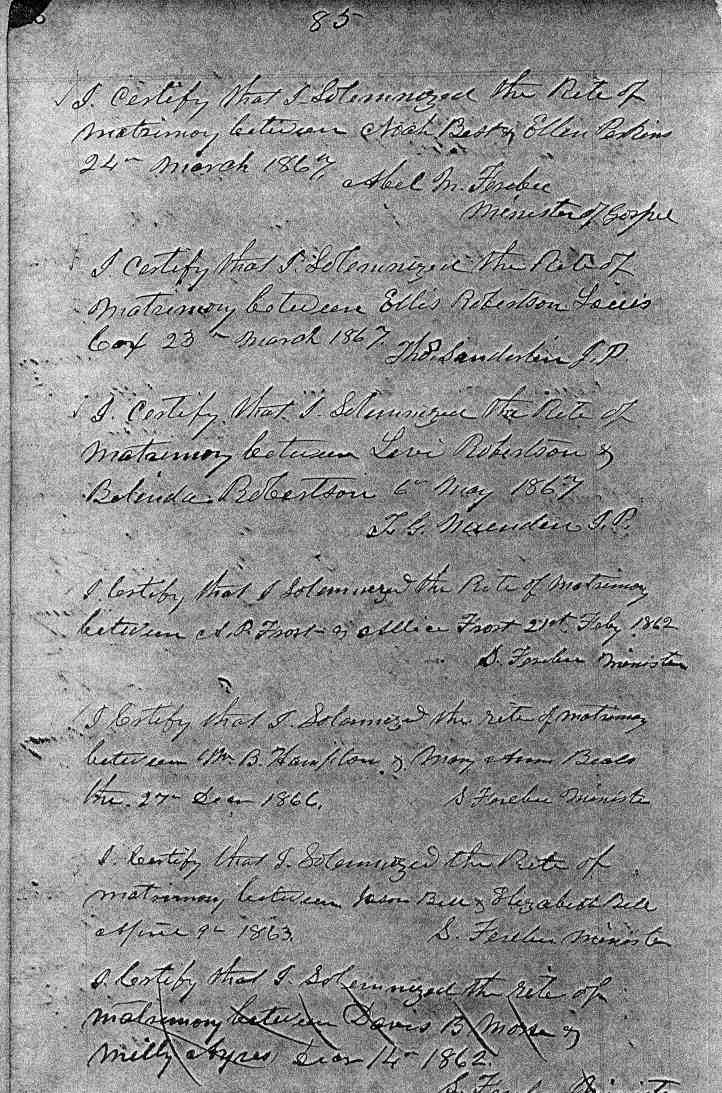 85
I. certify that I Solemnized the Rite of
matrimony between Noah Best & Ellen Perkins
24th March 1867
Abel M. Ferebee
Minister of Gospel
I certify that I. Solemnized the Rite of
Matrimony between Ellis Robertson Louis
Cox 23rd March 1867
Thos Sanderlin J.P.
I. certify that I. Solemnized the Rite of
Matrimony between Levi Robertson &
Belinda Robertson 6th May 1867
T. G. J.P.
I Certify that I Solemnized the Rite of Matrimony
between A. P. Frost & Allice Frost 21st Feby 1862
S. Ferebee Minister
I Certify that I. Solemnized the rite of matrimony
between Wm B. Hampton & Mary Ann Beals
the 27th Decr 1866.
S Ferebee Ministe
I. Certify that I. Solemnized the Rite of
matrimony between Bell & Elizabeth Bell
April 9th 1863.
S. Ferebee Minister
I. Certify that I. Solemnized the rite of
matrimony between Davis B Morse &
Milly Ayres Decr 14th 1862.
S. Ferebee Minister